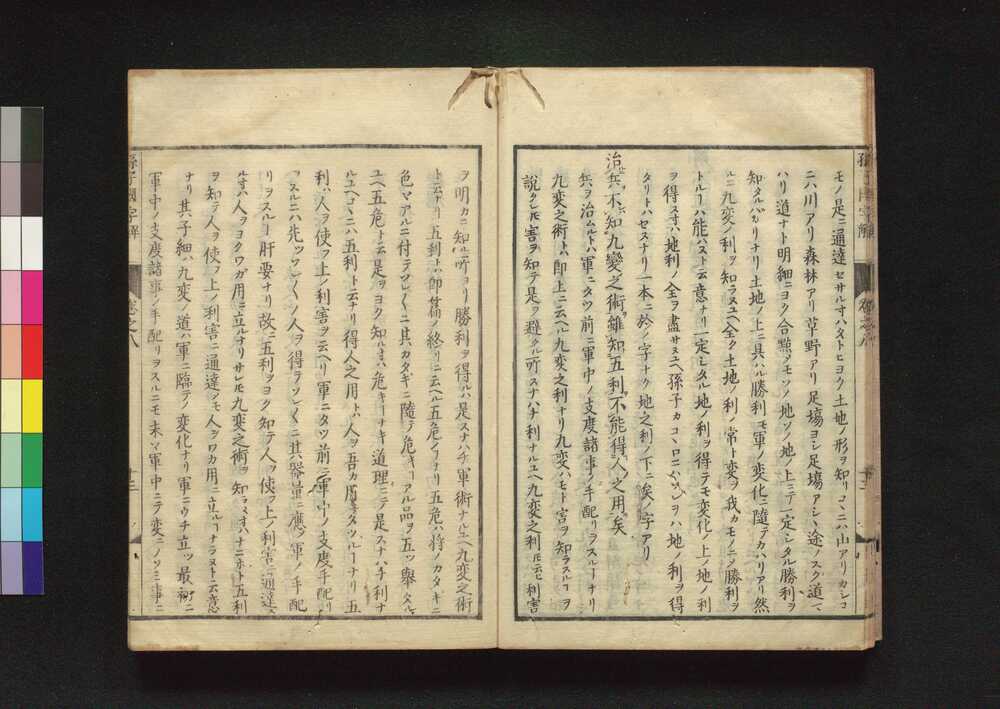 モノ是ニ通達セサルオハタトヒヨク土地ノ形ヲ知リコヽニハ山アリカシコ
ニハ川アリ森林アリ草野アリ足場ヨシ足場アシヽ途ノスク道マ
ハリ道ナト明細ニヨク合點シテモソノ地ソノ地ノ上ニテ一定シタル勝利ヲ
知タルハカリナリ土地ノ上ニ具ハル勝利モ軍ノ変化ニ隨テカハリアリ然
ルニ九変ノ利ヲ知ラヌユヘ全ク土地ノ利ノ常ト変ヲ我カモノニシ勝利ヲ
トルヿハ能ハスト云意ナリ一定シタル地ノ利ヲ得テモ変化ノ上ノ地ノ利
ヲ得スオハ地利ノ全ヲ盡サスユヘ孫子カコヽロニハイマヽヲハ地ノ利ヲ得
タリトハセスナリ一本ニ於ノ字ナク地之利ノ下ニ矣ノ字アリ
治兵不知九變之術雖知五利不能得人之用矣
兵ヲ治ムルトハ軍ニタツ前ニ軍中ノ支度諸事ノ手配リヲスルヿナリ
九変之術トハ即上ニ云ヘル九変之利ナリ九変ハモト害ヲ知ラスルヿヲ
説クレ𪜈害ヲ知テ是ヲ避クル所スナハチ利ナルユヘ九変之利𪜈云ヒ利害
ヲ明カニ知ル所ヨリ勝利ヲ得ルハ是スナハチ軍術ナルユヘ九変之術
ト云ナリ五利トハ即篇ノ終リニ云ヘル五危ノヿナリ五危ハ将ノカタキニ
色々アルニ付テソレ〱ニ其カタキニ隨テ危キヿアル品ヲ五ツ擧タル
ユヘ五危ト云是ヲヨク知ルオハ危キヿナキ道理ニテ是スナハチ利ナ
ルユヘコヽニハ五利ト云ナリ得人之用トハ人ヲ吾カ用ニタツルヿナリ五
利ハ人ヲ使フ上ノ利害ヲ云ヘリ軍ニタツ前ニ軍中ノ支度手配リ
ヲスルニハ先ソレ〱ノ人ヲ得テソレ〱ニ其器量ニ應シ軍ノ手配
リヲスルヿ肝要ナリ故ニ五利ヲヨク知テ人ヲ使フ上ノ利害ニ通達ス
ルオハ人ヲヨクワガ用ニ立ルナリサレ𪜈九変之術ヲ知ラスオハナニホト五利
ヲ知テ人ヲ使フ上ノ利害ニ通達シテモ人ヲワカ用ニ立ルヿナラヌト云意
ナリ其子細ハ九変ノ道ハ軍ニ臨テノ変化ナリ軍ニウチ立ツ最初ニ
軍中ノ支度諸事ノ手配リヲスルニモ未マ軍中ニテ変ニノソミ事ニ
孫子國字解
卷之八
十三